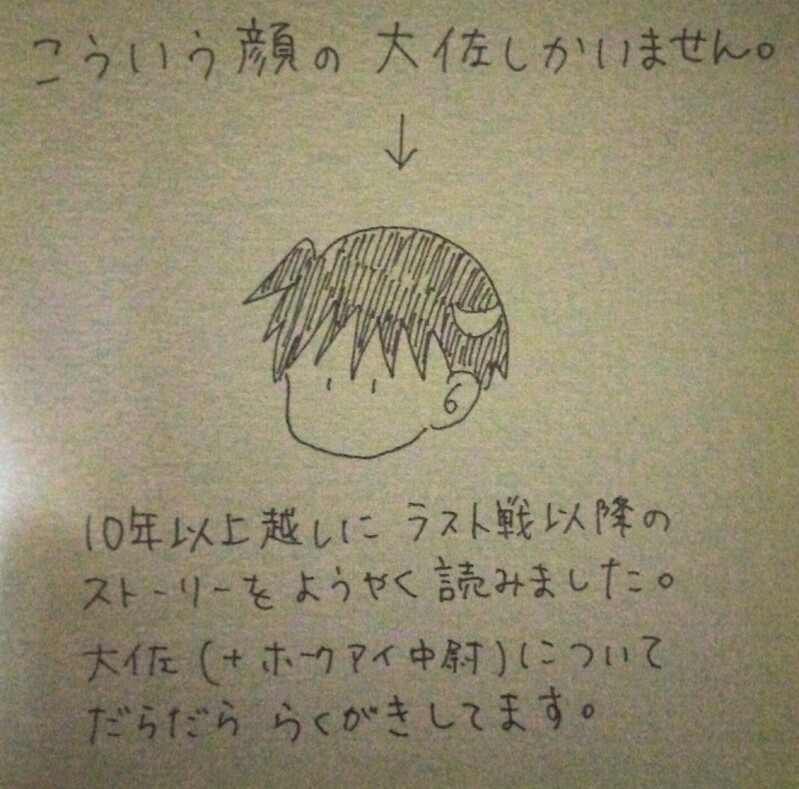 こういう顔の 大佐しかいません。
↓
10年以上越しに ラスト戦以降の
ストーリーを ようやく 読みました。
大佐 (+ ホークアイ中尉) について
だらだら らくがきしてます。